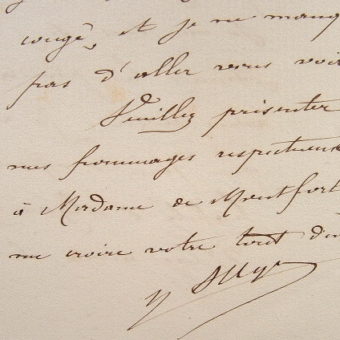 congé, et je ne manq
pas d'aller vous voir
Veuillez présenter
mes hommages respectueux
à Madame de Montfort
me croire votre tout dév